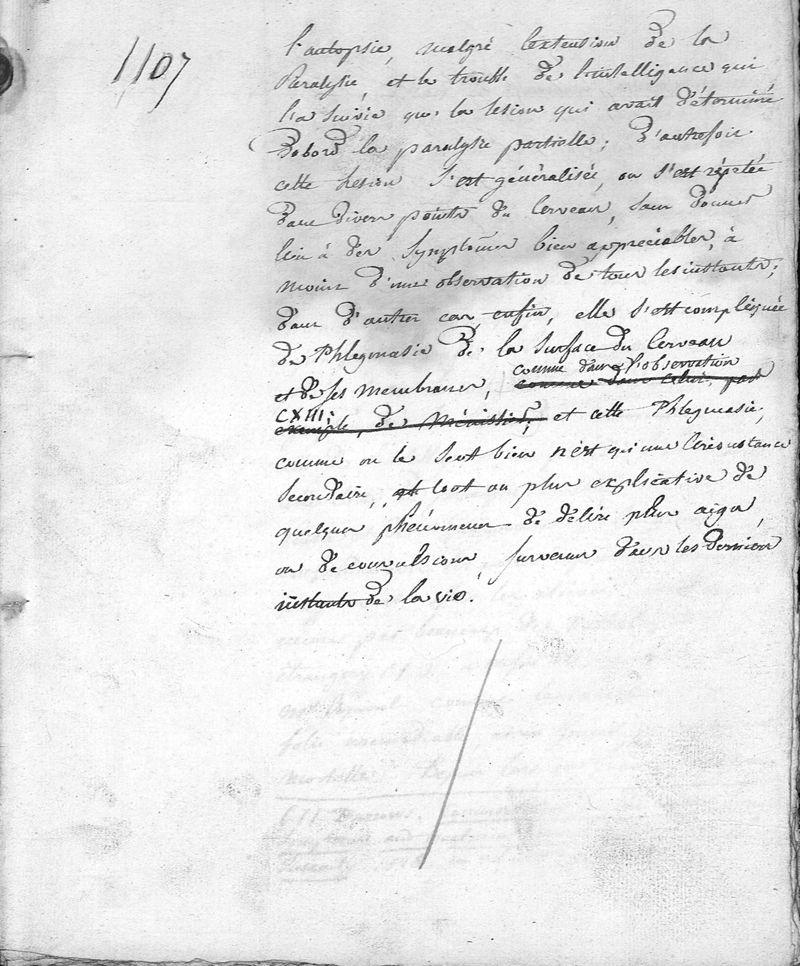 1107
l'autopsie, malgré l'extension de la
Paralysie, et le trouble de l'intelligence qui
l'a suivie que la lesion qui avait déterminé
dabord la paralysie partielle; d'autrefois
cette lesion s'est généralisée, ou s'est répetée
dans divers points du Cerveau, sans donner
lieu à des symptomes bien appréciables, à
moins d'une observation de tous les instants;
dans d'autres cas, enfin, elle s'est compliquée
de Phlegmasie de la surface du Cerveau
et de ses membranes, comme dans l'observation
CXIII; et cette Phlegmasie,
comme on le sent bien n'est qu'une Circonstance
secondaire, tout au plus explicative de
quelques phénomenes de délire plus aigu,
ou de convulsions survenus dans les derniers
instants de la vie.